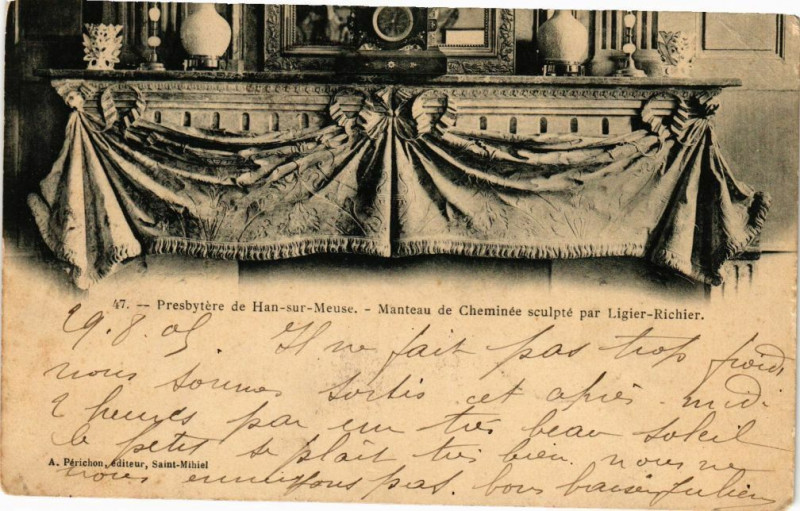 47. — Presbytère de Han-sur-Meuse. - Manteau de Cheminée sculpté par Ligier-Richier.
29.8.05 Il ne fait pas trop froid,
nous sommes sortis cet après-midi
2 heures par un très beau soleil
le petit se plaît très bien. nous ne
A. Périchon, éditeur, Saint-Mihiel
nous ennuyons pas. bons baisers Julien